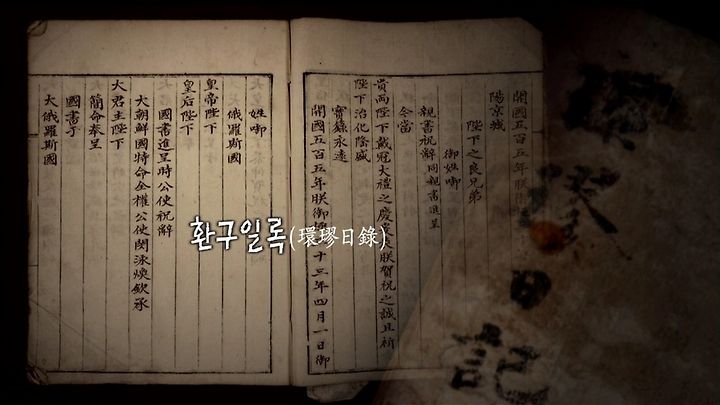 開國五百五年朕
陽京城
陛下之良兄弟
御姓啣
親書祝辭同親書進呈
令當
貴兩陛下戴冠大禮之慶 朕賀祝之誠且祈
陛下治化隆盛
寶籙永遠
開國五百五年朕御 十三年四月一日御
姓啣
俄羅斯國
皇帝陛下
皇后陛下
國書進呈時公使祝辭
大朝鮮國特命全權公使閔泳煥欽承
大君主陛下
簡命奉呈
國書于
大俄羅斯國
환구일록(環璆日錄)
日記